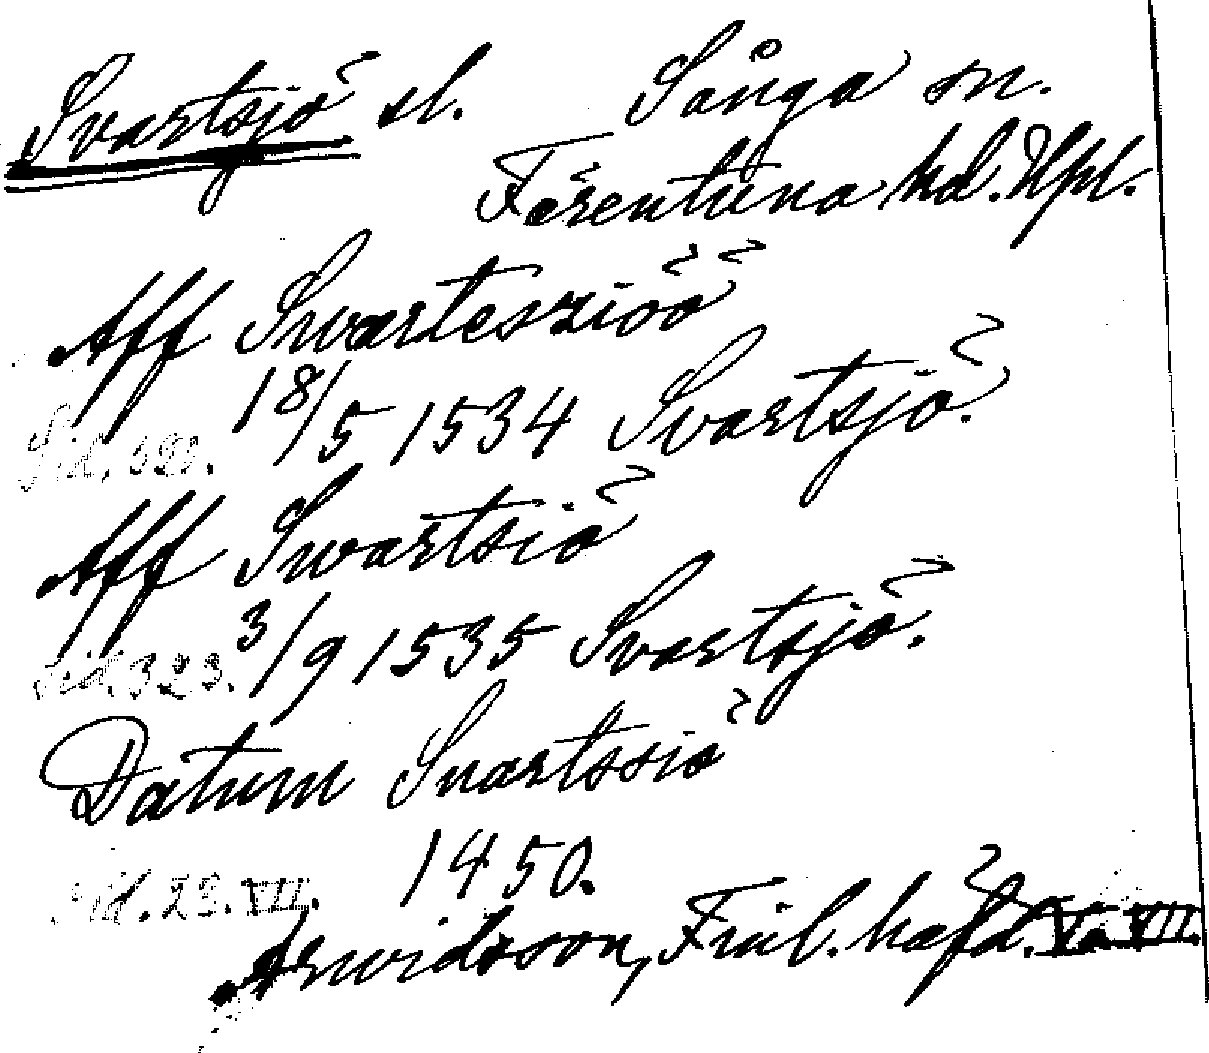 Svartsjö sl. Sånga sn.
Färentuna hd. Upl.
Aff Swarteszioö
18/5 1534 Svartsjö.
Sid. 323.
Aff Swartsiö
3/9 1535 Svartsjö.
sid. 323.
Datum Suartssiö
1450.
sid. 23. VII.
Arwidsson, Finl. häfd. V o. VII.